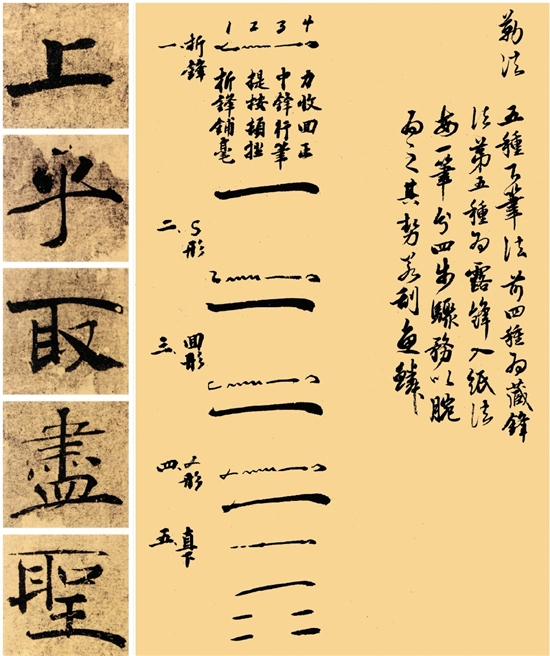 勒法
五種下筆法前四種為藏鋒
法第五種為露鋒入紙法
每一筆分四步驟務以腕
為之其勢若刮魚鱗
1 2 3 4
力收回正
中鋒行筆
提按頓挫
折鋒鋪毫
一、折鋒
二、S形
三、回形
四、形
五、直下
上
乎
取
盡
聖